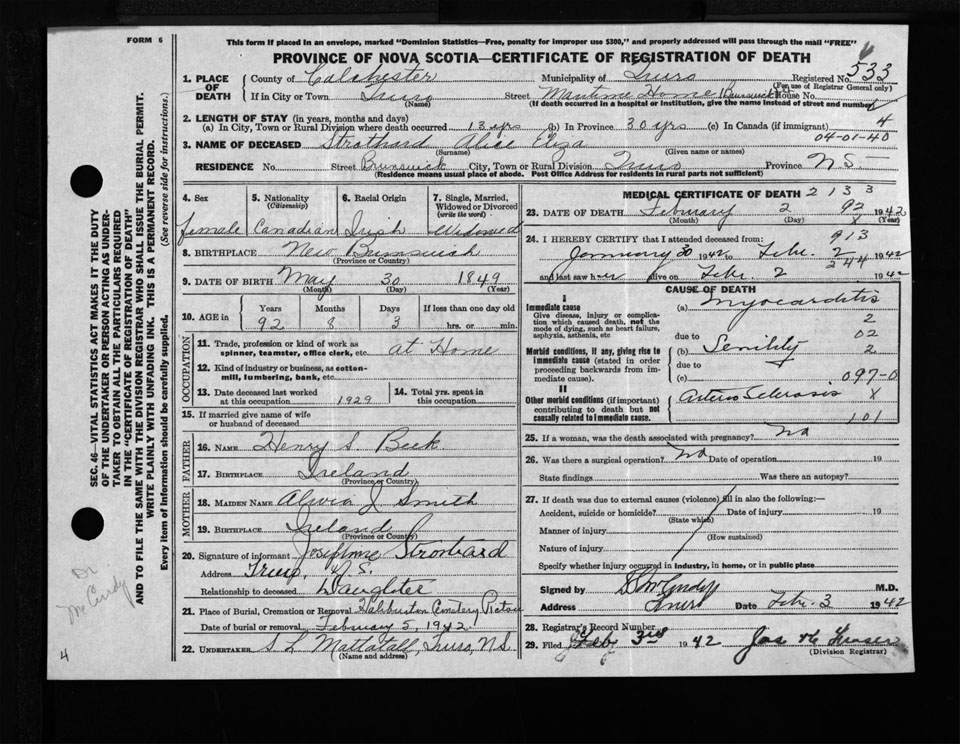 FORM 6
This form if placed in an envelope, marked "Dominion Statistics—Free, penalty for improper use $300," and properly addressed will pass through the mail "FREE"
PROVINCE OF NOVA SCOTIA—CERTIFICATE OF REGISTRATION OF DEATH
1. PLACE OF DEATH
County of Colchester Municipality of Truro Registered No. 533
(For use of Registrar General only)
If in City or Town Truro Street Maritime Home Brunswick House No.
(Name) (If death occurred in a hospital or institution, give the name instead of street and number)
2. LENGTH OF STAY (in years, months and days)
4
(a) In City, Town or Rural Division where death occurred 13 yrs (b) In Province 30 yrs (c) In Canada (if immigrant)
04-01-40
3. NAME OF DECEASED Strothard Alice Eliza
(Surname) (Given name or names)
RESIDENCE No. Street Brunswick City, Town or Rural Division Truro Province N.S.
(Residence means usual place of abode. Post Office Address for residents in rural parts not sufficient)
4. Sex
female
5. Nationality (Citizenship)
Canadian
6. Racial Origin
Irish
7. Single, Married, Widowed or Divorced (write the word)
Widowed
8. BIRTHPLACE New Brunswick
(Province or Country)
9. DATE OF BIRTH May 30 1849
(Month) (Day) (Year)
10. AGE in Years Months Days If less than one day old
92 8 3 hrs. or min.
OCCUPATION
11. Trade, profession or kind of work as spinner, teamster, office clerk, etc. at Home
12. Kind of industry or business, as cotton-mill, lumbering, bank, etc.
13. Date deceased last worked at this occupation 1929
14. Total yrs. spent in this occupation
15. If married give name of wife or husband of deceased
FATHER
16. NAME Henry S. Beek
17. BIRTHPLACE Ireland
(Province or Country)
MOTHER
18. MAIDEN NAME J. Smith
19. BIRTHPLACE Ireland
(Province or Country)
20. Signature of informant Josephine
Address Truro, N.S.
Relationship to deceased Daughter
21. Place of Burial, Cremation or Removal Haliburton Cemetery Pictou
Date of burial or removal February 5, 1942
22. UNDERTAKER S L Mattatall, Truro, N.S.
(Name and address)
MEDICAL CERTIFICATE OF DEATH 2133
23. DATE OF DEATH February 2 92 1942
(Month) (Day) X (Year)
24. I HEREBY CERTIFY that I attended deceased from: 913
January 30 1942 to Feb. 2 1942
244
and last saw her alive on Febr. 2 1942
CAUSE OF DEATH
I
Immediate cause
Give disease, injury or complication which caused death, not the mode of dying, such as heart failure, asphyxia, asthenia, etc.
(a) Myocarditis
2
due to 02
Morbid conditions, if any, giving rise to immediate cause (stated in order proceeding backwards from immediate cause).
(b) Senility 2
due to
(c) 097-0
II
Other morbid conditions (if important) contributing to death but not causally related to immediate cause.
Arterio Sclerosis X
101
25. If a woman, was the death associated with pregnancy? No
26. Was there a surgical operation? No Date of operation 19
State findings Was there an autopsy?
27. If death was due to external causes (violence) fill in also the following:—
Accident, suicide or homicide? Date of injury 19
(State which)
Manner of injury
(How sustained)
Nature of injury
Specify whether injury occurred in industry, in home, or in public place
Signed by M.D.
Address Truro Date Febr. 3 1942
28. Registrar's Record Number
29. Filed Feb 3rd 1942 Jas
(Division Registrar)
SEC. 46—VITAL STATISTICS ACT MAKES IT THE DUTY
OF THE UNDERTAKER OR PERSON ACTING AS UNDER-
TAKER TO OBTAIN ALL THE PARTICULARS REQUIRED
IN THE "CERTIFICATE OF REGISTRATION OF DEATH"
AND TO FILE THE SAME WITH THE DIVISION REGISTRAR WHO SHALL ISSUE THE BURIAL PERMIT.
WRITE PLAINLY WITH UNFADING INK. THIS IS A PERMANENT RECORD.
Every item of information should be carefully supplied. (See reverse side for instructions.)
Dr
McCurdy
4